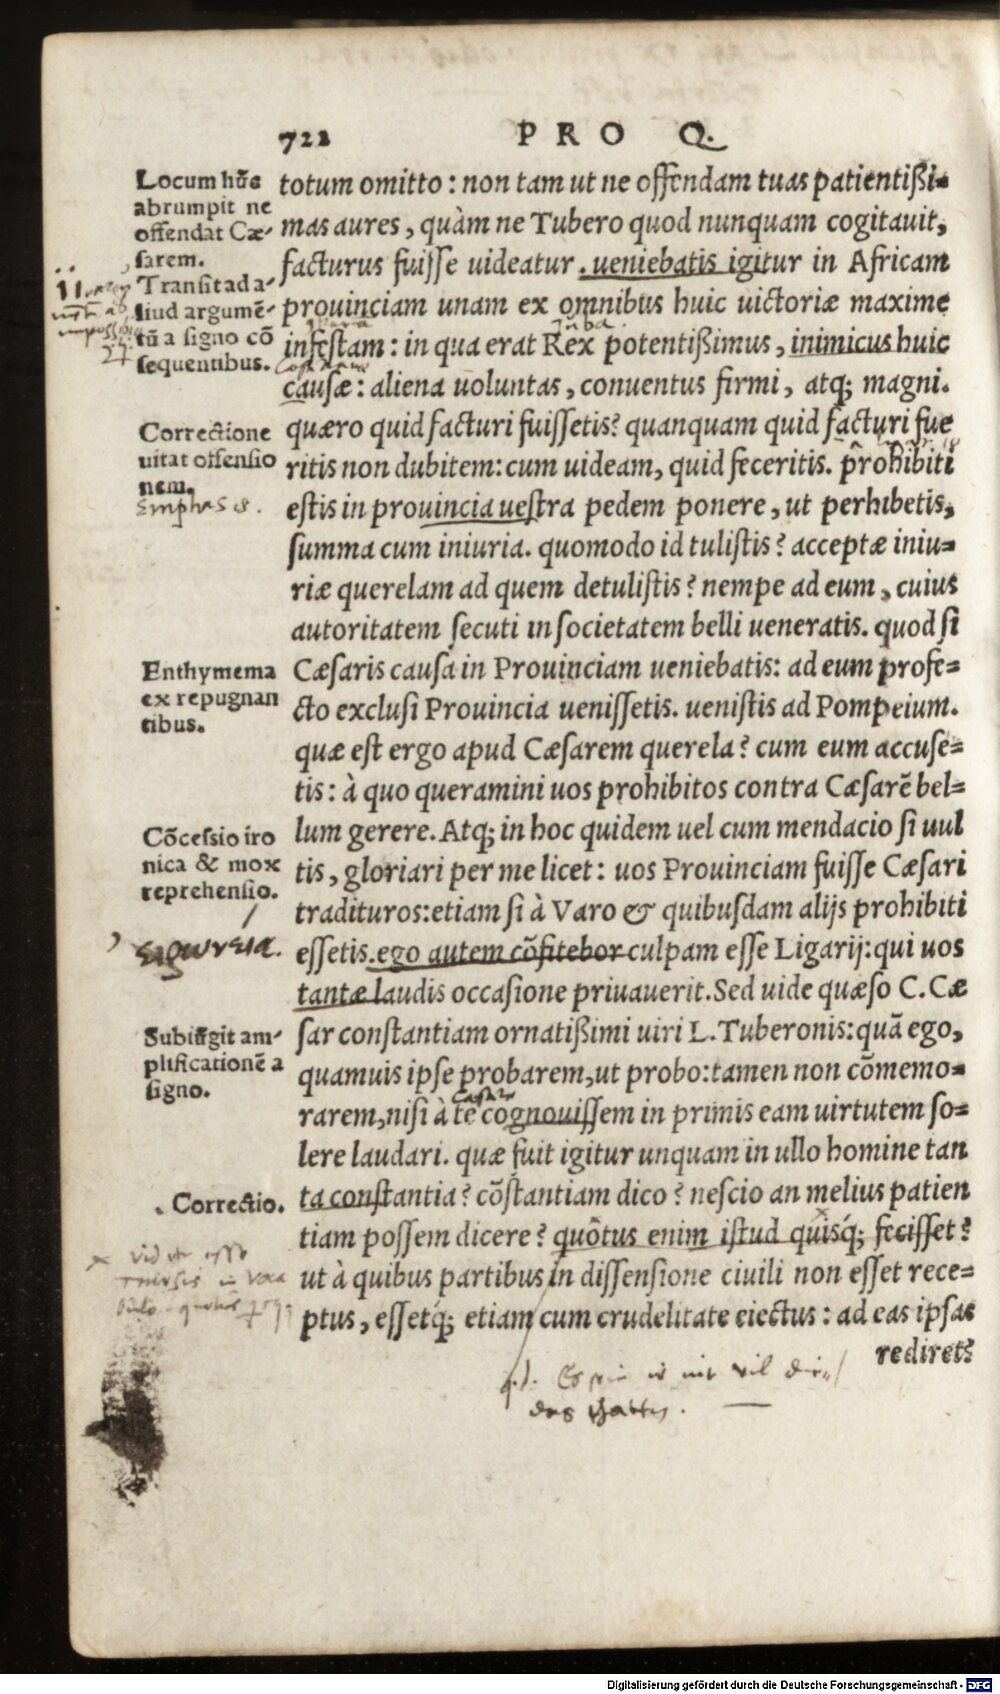 722 PRO Q.
Locum hūc
abrumpit ne
offendat Cæ-
sarem.
Transit ad a-
liud argumē-
tū a signo cō
sequentibus.
Correctione
uitat offensio
nem.
Emphasis.
Enthymema
ex repugnan
tibus.
Cōcessio iro
nica & mox
reprehensio.
Subiūgit am-
plificationē a
signo.
Correctio.
totum omitto: non tam ut ne offendam tuas patientißi-
mas aures, quàm ne Tubero quod nunquam cogitauit,
facturus fuisse uideatur. ueniebatis igitur in Africam
prouinciam unam ex omnibus huic uictoriæ maxime
Juba
infestam: in qua erat Rex potentißimus, inimicus huic
causæ: aliena uoluntas, conuentus firmi, atq; magni.
quæro quid facturi fuissetis? quanquam quid facturi fue
ritis non dubitem: cum uideam, quid feceritis. prohibiti
estis in prouincia uestra pedem ponere, ut perhibetis,
summa cum iniuria. quomodo id tulistis? acceptæ iniu-
riæ querelam ad quem detulistis? nempe ad eum, cuius
autoritatem secuti in societatem belli ueneratis. quod si
Cæsaris causa in Prouinciam ueniebatis: ad eum profe-
cto exclusi Prouincia uenissetis. uenistis ad Pompeium.
quæ est ergo apud Cæsarem querela? cum eum accuse-
tis: à quo queramini uos prohibitos contra Cæsarē bel-
lum gerere. Atq; in hoc quidem uel cum mendacio si uul
tis, gloriari per me licet: uos Prouinciam fuisse Cæsari
tradituros: etiam si à Varo & quibusdam alijs prohibiti
essetis. ego autem cōfitebor culpam esse Ligarij: qui uos
tantæ laudis occasione priuauerit. Sed uide quæso C. Cæ
sar constantiam ornatißimi uiri L. Tuberonis: quā ego,
quamuis ipse probarem, ut probo: tamen non cōmemo-
rarem, nisi à te cognouissem in primis eam uirtutem so-
lere laudari. quæ fuit igitur unquam in ullo homine tan
ta constantia? cōstantiam dico? nescio an melius patien
tiam possem dicere? quôtus enim istud quisq́; fecisset?
ut à quibus partibus in dissensione ciuili non esset rece-
ptus, essetq́; etiam cum crudelitate eiectus: ad eas ipsas
rediret?
Digitalisierung gefördert durch die Deutsche Forschungsgemeinschaft - DFG